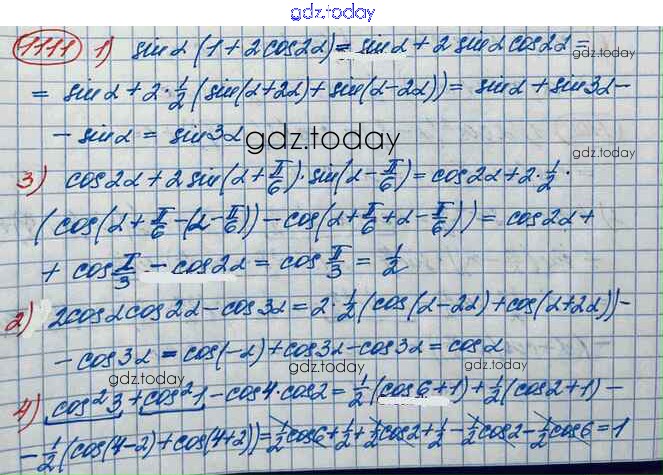 gdz.today
1111 1) sin α (1 + 2 cos 2α) = sin α + 2 sin α cos 2α =
gdz.today
= sin α + 2 · 1/2 (sin(α+2α) + sin(α-2α)) = sin α + sin 3α -
- sin α = sin 3α
gdz.today
gdz.today
3) cos 2α + 2 sin(α + π/6) · sin(α - π/6) = cos 2α + 2 · 1/2 ·
(cos(α + π/6 - (α - π/6)) - cos(α + π/6 + α - π/6)) = cos 2α +
+ cos π/3 - cos 2α = cos π/3 = 1/2
gdz.today
2) 2 cos α cos 2α - cos 3α = 2 · 1/2 (cos(α - 2α) + cos(α + 2α)) -
- cos 3α = cos(-α) + cos 3α - cos 3α = cos α
gdz.today
gdz.today
4) cos² 3 + cos² 1 - cos 4 · cos 2 = 1/2 (cos 6 + 1) + 1/2 (cos 2 + 1) -
- 1/2 (cos(4-2) + cos(4+2)) = 1/2 cos 6 + 1/2 + 1/2 cos 2 + 1/2 - 1/2 cos 2 - 1/2 cos 6 = 1
gdz.today